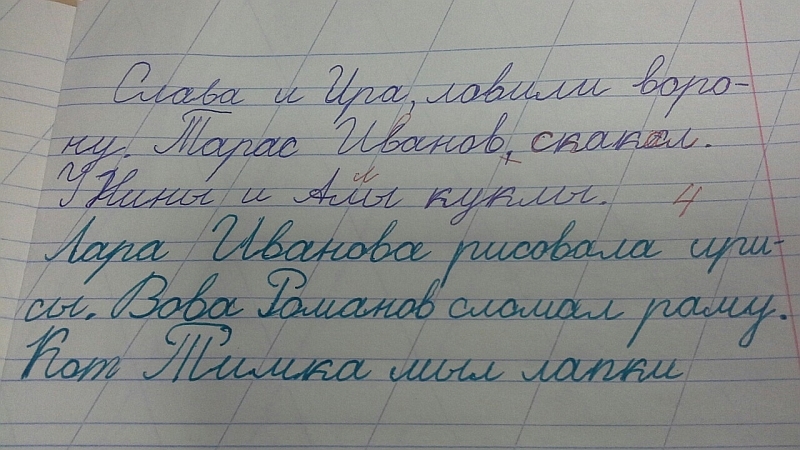 Слава и Ира, ловили воро-
ну. Тарас Иванов, скакал.
У Нины и Аллы куклы. 4
Лара Иванова рисовала ири-
сы. Вова Романов сломал раму.
Кот Тимка мыл лапки